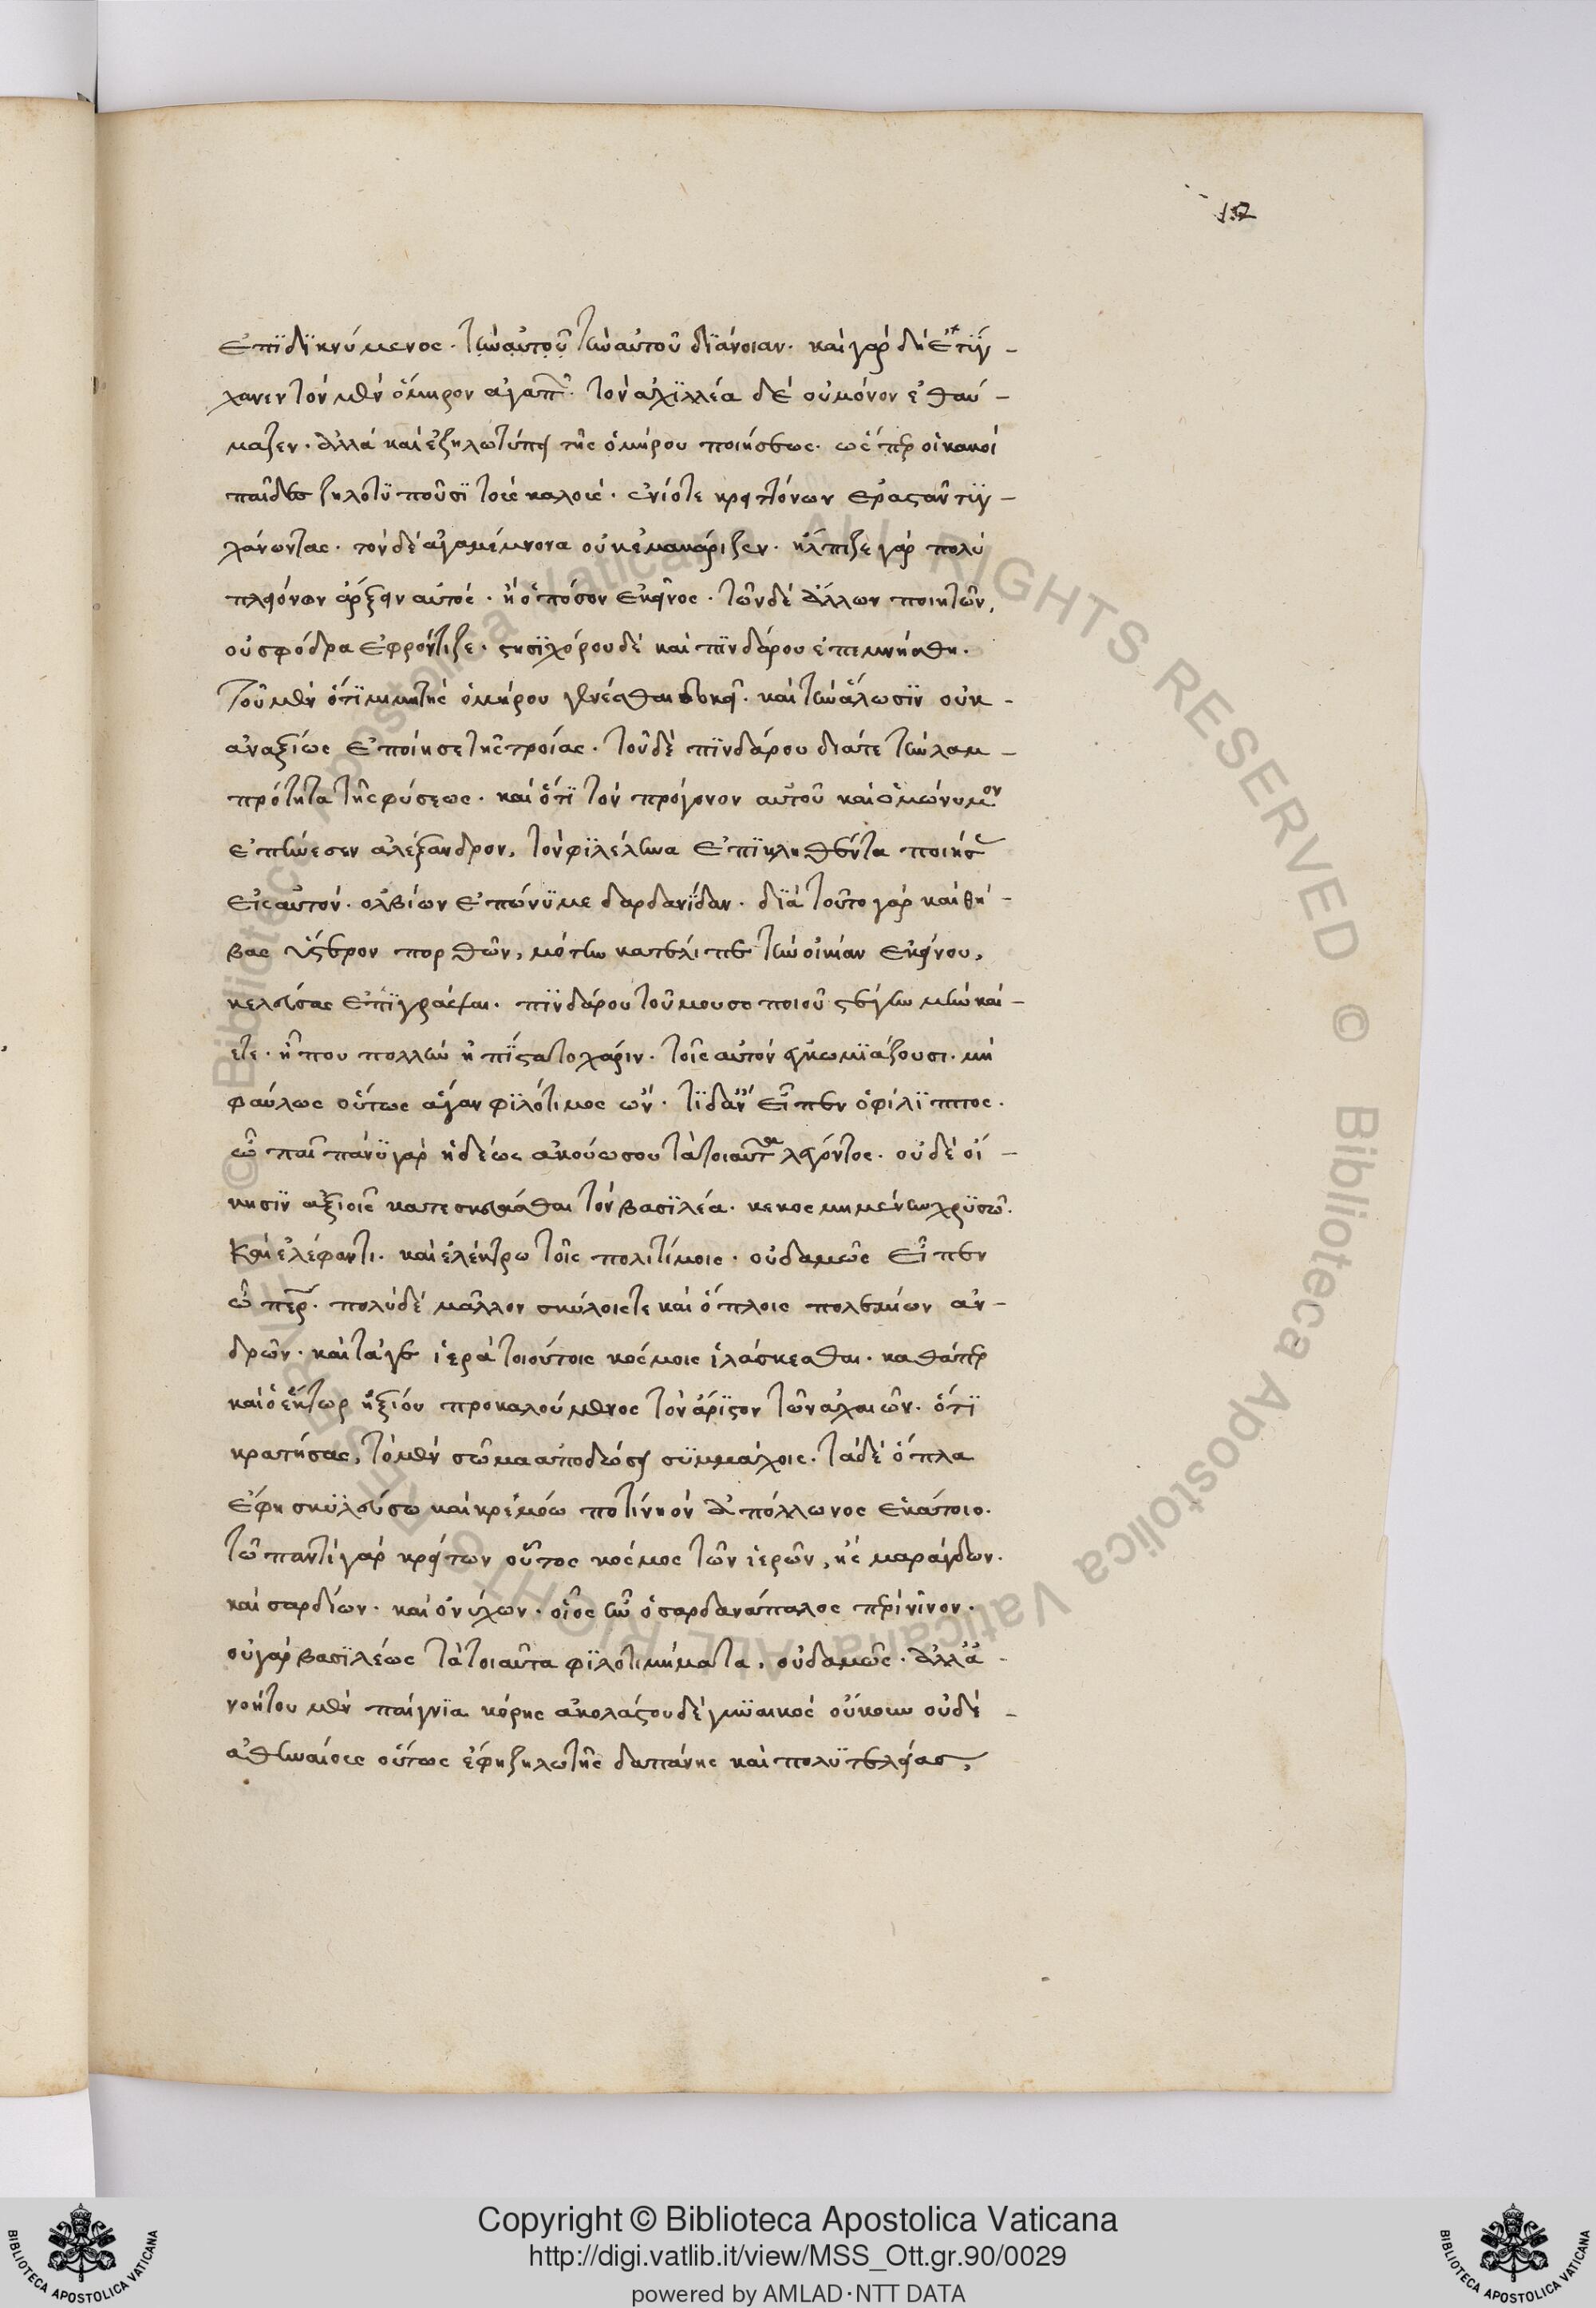 132
ἐπϊδϊκνύμενος. τὴν αὐτοῦ τὴν αὐτοῦ δϊάνοιαν. καὶ γὰρ δὴ ἐτϊγ-
χανεν τὸν μὲν ὅμηρον ἀγαπῶν. τὸν ἀχϊλλέα δὲ οὐ μόνον ἐθαύ-
μαζεν. ἀλλὰ καὶ ἐζηλωτύπει τῆς ὁμήρου ποιήσεως. ὡσπερ οἱ κακοὶ
παῖδες ζηλοτϋποῦσϊ τοὺς καλοὺς. ἐνίοτε κρειττόνων ἐραστῶν τϊγ-
χάνωντας. τὸν δὲ ἀγαμέμνονα οὐκ ἐμακάριζεν. ἤλπιζε γὰρ πολὺ
πλειόνων ἄρξειν αὐτὸς. ἢ ὁπόσον ἐκεῖνος. τῶν δὲ ἄλλων ποιητῶν,
οὐ σφόδρα ἐφρόντιζε. στησϊχόρου δὲ καὶ πϊνδάρου ἐπεμνήσθη.
τοῦ μὲν ὅτϊ μιμητὴς ὁμήρου γενέσθαι δοκεῖ. καὶ τὴν ἅλωσϊν οὐκ-
ἀναξίως ἐποίησε τῆς τροίας. τοῦ δὲ πϊνδάρου διάτε τὴν λαμ-
πρότητα τῆς φύσεως. καὶ ὅτϊ τὸν πρόγονον αὐτοῦ καὶ ὁμώνυμον
ἐπήνεσεν ἀλέξανδρον, τὸν φϊλέλληνα ἐπϊκληθέντα ποιήσας
εἰς αὐτόν. ὀλβίων ἐπώνϋμε δαρδανίδαν. δϊὰ τοῦτο γὰρ καὶ θή-
βας ὕστερον πορθῶν, μόνην κατέλιπε τὴν οἰκίαν ἐκείνου,
κελεύσας ἐπϊγράψαι. πϊνδάρου τοῦ μουσοποιοῦ στέγην μὴ καί-
ετε. ἦ που πολλὴν ἠπϊστατο χάριν. τοῖς αὐτὸν ἐγκωμϊάζουσι. μὴ
φαύλως οὕτως ἄγαν φϊλότιμος ὤν. τϊ δαν εἶπεν ὁ φίλϊππος.
ὦ παῖ πάνϋ γὰρ ἡδέως ἀκούω σου τὰ τοιαῦτα λέγοντος. οὐδὲ οἴ-
κησϊν ἀξιοῖς κατεσκευάσθαι τὸν βασϊλέα. κεκοσμημένην χρϋσῶ.
καὶ ἐλέφαντι. καὶ ἐλέκτρω τοῖς πολιτίμοις. οὐδαμῶς εἶπεν
ὦ πάτερ. πολὺ δὲ μᾶλλον σκύλοις τε καὶ ὅπλοις πολεμίων ἀν-
δρῶν. καὶ τάγε ἱερὰ τοιούτοις κόσμοις ἱλάσκεσθαι. καθάπερ
καὶ ὁ ἕκτωρ ἠξίου προκαλούμενος τὸν ἄρϊστον τῶν ἀχαιῶν. ὅτϊ
κρατήσας, τὸ μὲν σῶμα ἀποδώσει συμμάχοις. τὰ δὲ ὅπλα
ἔφη σκϋλεύσω καὶ κρεμόω ποτὶ νηὸν ἀπόλλωνος ἑκάτοιο.
τῶ παντὶ γὰρ κρείττων οὗτος κόσμος τῶν ἱερῶν, ἢ σμαράγδων.
καὶ σαρδίων. καὶ ὀνύχων. οἷος ἦν ὁ σαρδανάπαλος περὶ νῖνον.
οὐ γὰρ βασϊλέως τὰ τοιαῦτα φϊλοτιμήματα, οὐδαμῶς. ἀλλὰ ἀ-
νοήτου μὲν παίγνϊα κόρης ἀκολάστου δὲ γυναικὸς οὔκουν οὐδὲ-
ἀθηναίοις οὕτως ἔφη ζηλωτῆς δαπάνης καὶ πολϋτελείας,
Copyright © Biblioteca Apostolica Vaticana
http://digi.vatlib.it/view/MSS_Ott.gr.90/0029
powered by AMLAD·NTT DATA